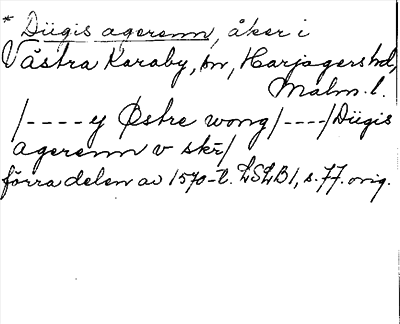 * Dügis agerenn, åker i
Västra Karaby, sn, Harjagers hd,
Malm. l.
/----y Østre wong/----/Dügis
agerenn v skr/
förra delen av 1570-t. LSLB1, s. 77. orig.